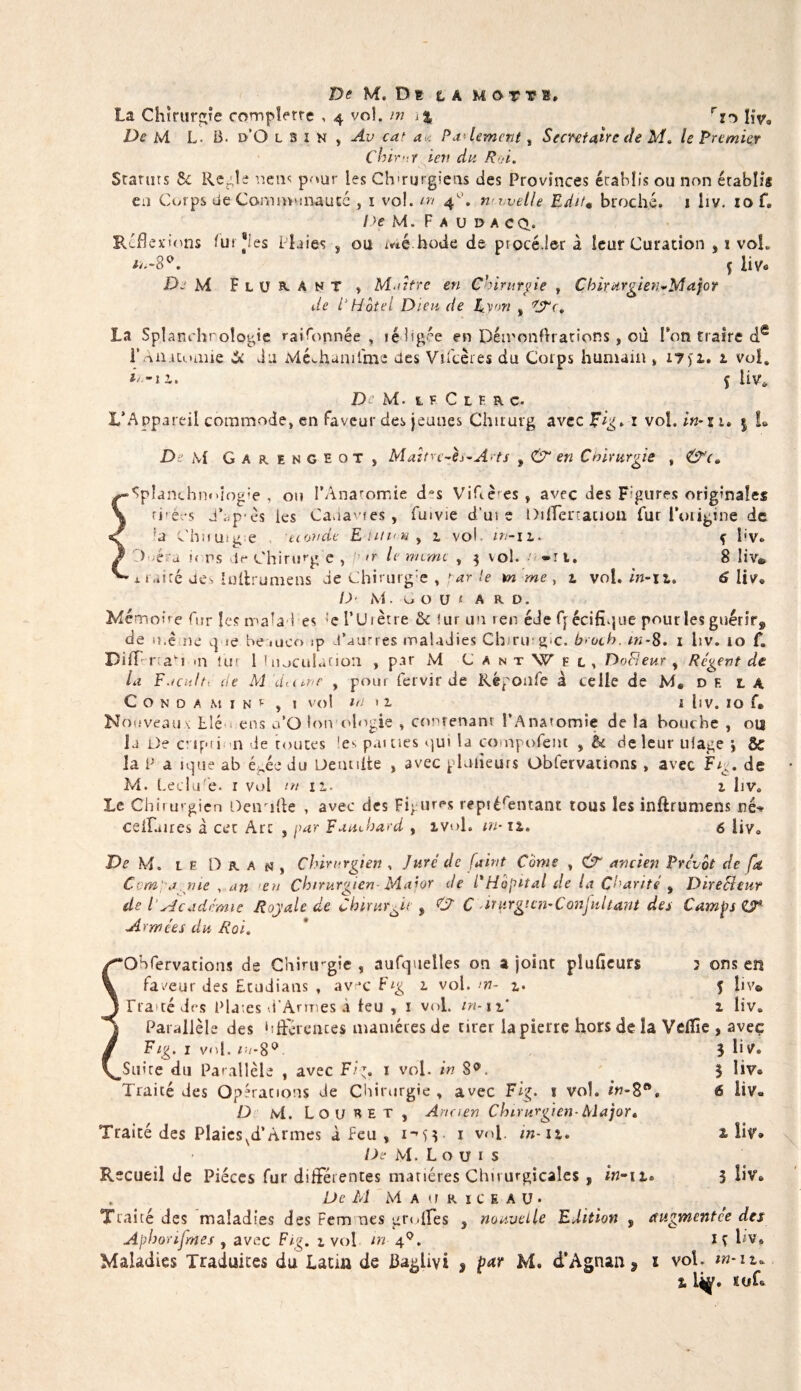 De M. DE LA MOTTE.
La Chirurgie complette, 4 vol. in 12 10 liv.
De M L. B. D'OLBIN, Av cat au Parlement, Secretaire de M. le Premier
Chirur ien du Roi.
Statuts & Regle mens pour les Chirurgiens des Provinces établis ou non établis
en Corps de Communauté, 1 vol. in 4°. nouvelle Edit. broché. 1 liv. 10 f.
De M. FAUDACQ.
Réflexions fur les Plaies, ou Mé hode de procéder à leur Curation, 1 vol.
in-8°. 5 liv.
De M FLURANT, Maître en Chirurgie, Chirurgien-Major
de l'Hôtel Dieu de Lyon, &c.
La Splanchnologie raifonnée, rédigée en Démonftrations, où l'on traire de
l'Anatomie & du Méchanifme des Vifcères du Corps humain, 1752. 2 vol.
in-12. 5 liv.
De M. LE CLERC.
L'Appareil commode, en faveur des jeunes Chirurg avec Fig. 1 vol. in-12. 3 l.
De M GARENGEOT, Maître-ès-Arts, & en Chirurgie, &c.
Splanchnologie, ou l'Anatomie des Vifcères, avec des Figures originales
tirées d'après les Cadavres, fuivie d'une Differtation fur l'origine de
la Chirurgie, seconde Edition, 2 vol. in-12. 5 liv.
Opéra ions de Chirurg e, par le même, 3 vol. in-12. 8 liv.
Traité des Inftrumens de Chirurgie, par le m me, 2 vol. in-12. 6 liv.
De M. GOULARD.
Mémoire fur les malad es de l'Urètre & fur un remède fpécifique pour les guérir,
de même q ue beaucoup d'autres maladies Chirurgic. broch. in-8. 1 liv. 10 f.
Differtation fur l'Inoculation, par M CANTWEL, Docteur, Régent de
la Faculté de Médecine, pour fervir de Réponfe à celle de M. DE LA
CONDAMINE, 1 vol in 12 1 liv. 10 f.
Nouveaux Elé ens d'Odontologie, contenant l'Anatomie de la bouche, ou
la Defcription de toutes les parties qui la compofent, & de leur ufage; &
la Pratique abrégée du Dentifte, avec plufieurs Obfervations, avec Fig. de
M. Leclufe. 1 vol in 12. 2 liv.
Le Chirurgien Dentifte, avec des Figures repréfentant tous les inftrumens né-
ceffaires à cet Art, par Fauchard, 2 vol. in-12. 6 liv.
De M. LE DRAN, Chirurgien, Juré de faint Côme, & ancien Prévôt de fa
Compagnie, an ien Chirurgien-Major de l'Hôpital de la Charité, Directeur
de l'Académie Royale de Chirurgie, & Chirurgien-Confultant des Camps &
Armées du Roi.
Obfervations de Chirurgie, aufquelles on a joint plufieurs 3 ons en
faveur des Etudians, avec Fig 2 vol. in- 2. 5 liv.
Traité des Plaies d'Armes à feu, 1 vol. in-12 2 liv.
Parallèle des différentes maniéres de tirer la pierre hors de la Veffie, avec
Fig. 1 vol. in-8°. 3 liv.
Suite du Parallèle, avec Fig. 1 vol. in 8°. 3 liv.
Traité des Opérations de Chirurgie, avec Fig. 1 vol. in-8°. 6 liv.
De M. LOUBET, Ancien Chirurgien-Major.
Traité des Plaies d'Armes à Feu, 1753. 1 vol. in-12. 2 liv.
De M. LOUIS
Recueil de Piéces fur différentes matiéres Chirurgicales, in-12. 3 liv.
De M MAURICEAU.
Traité des maladies des Femmes groffes, nouvelle Edition, augmentée des
Aphorifmes, avec Fig. 2 vol in 4°. 15 liv.
Maladies Traduites du Latin de Baglivi, par M. d'Agnan, 1 vol. in-12.
2 liv. 10 f.